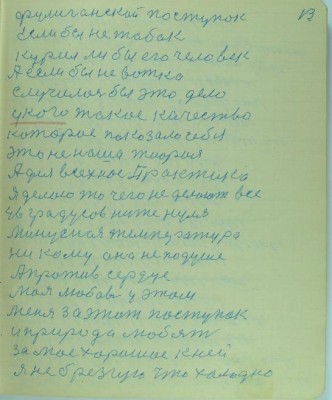 13
фулиганский поступок
Если бы не табак
курил ли бы его человек
А если бы не вотка
случился бы это дело
у кого такое качество
которое показало себя
это не наша теория
А для всех нас Практика
я делаю то чего не делают все
40 градусов ниже нуля
минусная температура
ни кому она не по душе
А против сердце
моя любовь у этом
меня за этот поступок
и природа любят
за мое хорошое к ней
я не брезгую что холодно